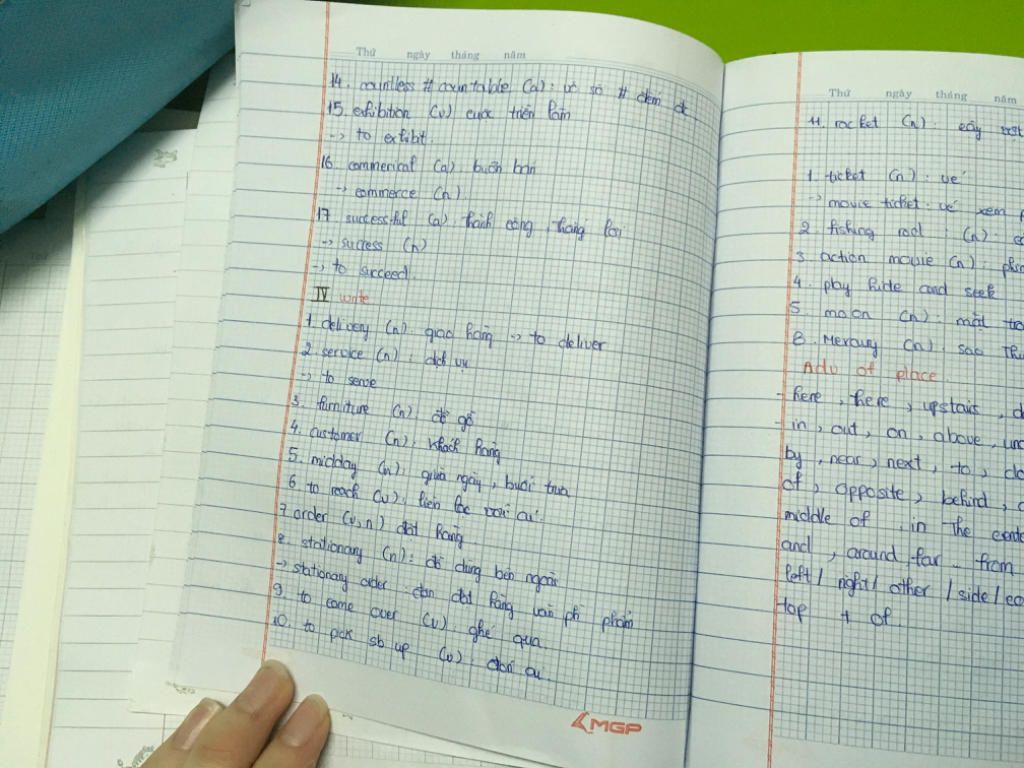 Thứ ngày tháng năm
14. countless # countable (a): vô số # đếm đc
15. exhibition (v) cuộc triển lãm
-> to exhibit.
16. commerical (a) buôn bán
-> commerce (n)
17. successful (a) thành công, thắng lợi
-> success (n)
-> to succeed.
IV write
1. delivery (n) giao hàng -> to deliver
2. service (n): dịch vụ
-> to serve
3. furniture (n) đồ gỗ
4. customer (n). khách hàng
5. midday (n). giữa ngày, buổi trưa
6. to reach (v). liên lạc với ai.
7. order (v,n) đặt hàng
8. stationary (n): đồ dùng bên ngoài
-> stationary order. đơn đặt hàng văn phòng phẩm
9. to come over (v). ghé qua.
10. to pick sb up (v). đón ai.
MGP
Thứ ngày tháng năm
11. rocket (n).
1. ticket (n): vé
-> movie ticket: vé xem
2. fishing rod: (n)
3. action movie (n):
4. play hide and seek
5. moon (n): mặt
8. Mercury (n): sao
Adv of place.
- here, there, upstairs,
- in, out, on, above,
by, near, next, to,
of, opposite, behind,
middle of, in the
and, around far.. from
left / right / other / side /
top + of.